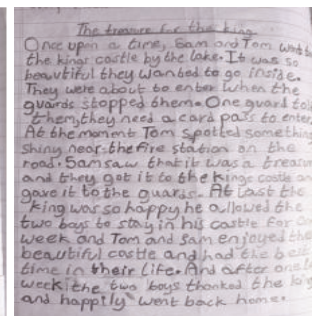 The treasure for the king
Once upon a time, Sam and Tom went to
the kings castle by the lake. It was so
beautiful they wanted to go inside.
They were about to enter when the
guards stopped them. One guard told
them, they need a card pass to enter.
At the moment Tom spotted something
shiny near the fire station on the
road. Sam saw that it was a treasure
and they got it to the kings castle and
gave it to the guards. At last the
king was so happy he allowed the
two boys to stay in his castle for one
week and Tom and Sam enjoyed the
beautiful castle and had the best
time in their life. And after one
week, the two boys thanked the king
and happily went back home.